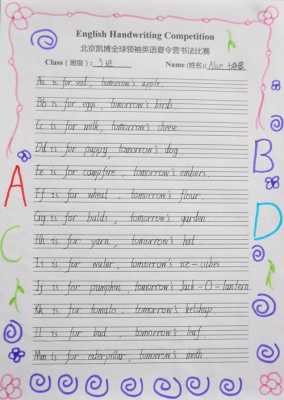 English Handwriting Competition
北京凯博全球领袖英语夏令营书法比赛
Class（班级）: 3班 Name (姓名):
Aa is for seed, tomorrow's apple.
Bb is for eggs, tomorrow's birds
Cc is for milk, tomorrow's cheese.
Dd is for puppy, tomorrow's dog
Ee is for campfire, tomorrow's embers.
Ff is for wheat, tomorrow's flour.
Gg is for bulbs, tomorrow's garden
Hh is for yarn, tomorrow's hat.
Ii is for water, tomorrow's ice-cubes
Jj is for pumpkin, tomorrow's Jack-O-lantern
Kk is for tomato, tomorrow's ketchup.
Ll is for bud, tomorrow's leaf
Mm is for caterpillar, tomorrow's moth
A
B
C
D